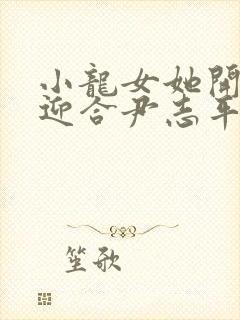 小龍女她開
迎合尹志平
笙歌